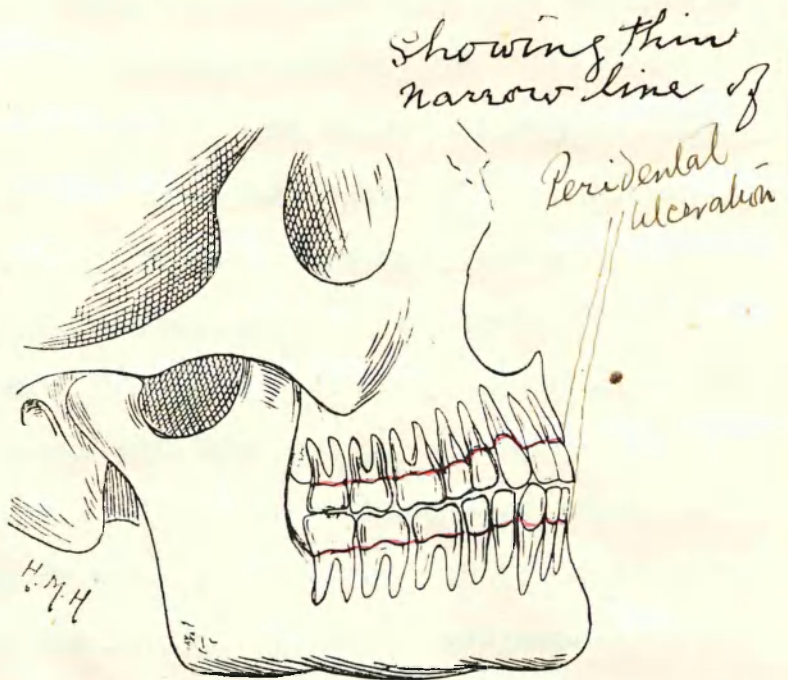 Showing thin
narrow line of
Peridental
Ulceration
H.M.H